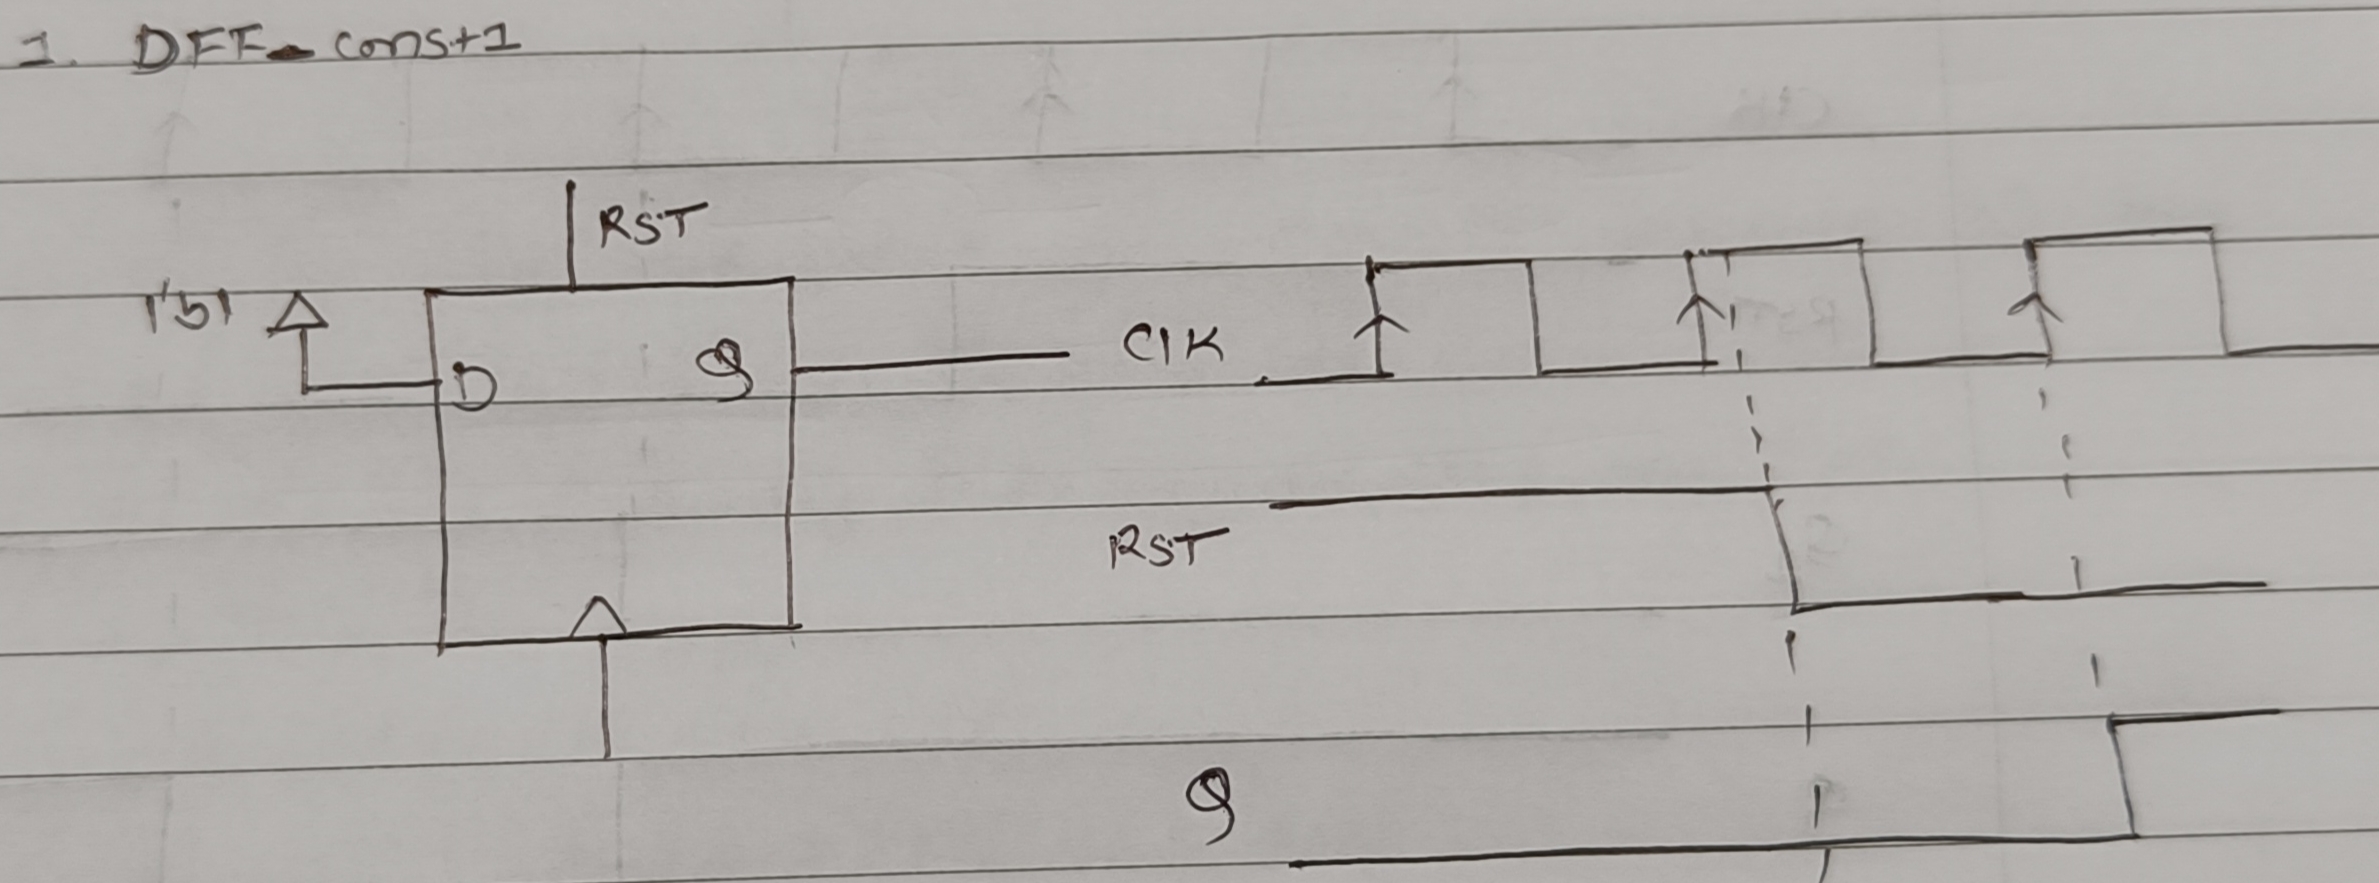 1. DFF- const1
RST
1'b1
D Q
CLK
RST
Q